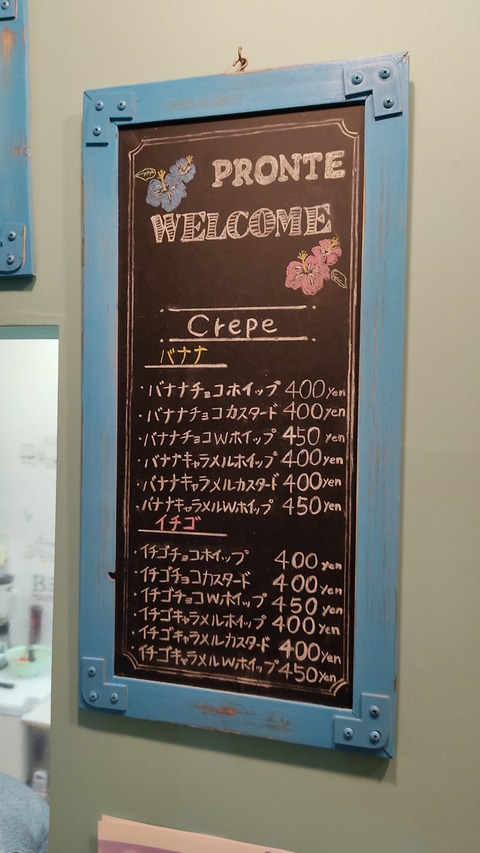 PRONTE
WELCOME
Crepe
バナナ
・バナナチョコホイップ 400yen
・バナナチョコカスタード 400yen
・バナナチョコWホイップ 450yen
・バナナキャラメルホイップ 400yen
・バナナキャラメルカスタード 400yen
・バナナキャラメルWホイップ 450yen
イチゴ
・イチゴチョコホイップ 400yen
・イチゴチョコカスタード 400yen
・イチゴチョコWホイップ 450yen
・イチゴキャラメルホイップ 400yen
・イチゴキャラメルカスタード 400yen
・イチゴキャラメルWホイップ 450yen